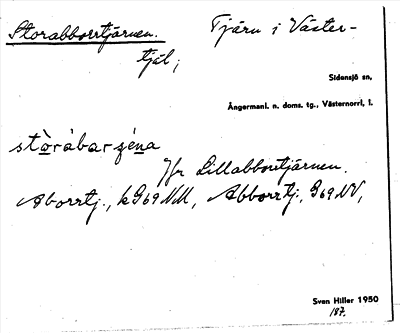 Storabborrtjärnen. Tjärn i Väster-
tjäl;
Sidensjö sn,
Ångermanl. n. doms. tg., Västernorrl, l.
stòrábarʒéna
Jfr Lillabborrtjärnen.
Aborrtj., kG69NM, Abborrtj., G69NV,
Sven Hiller 1950
187.